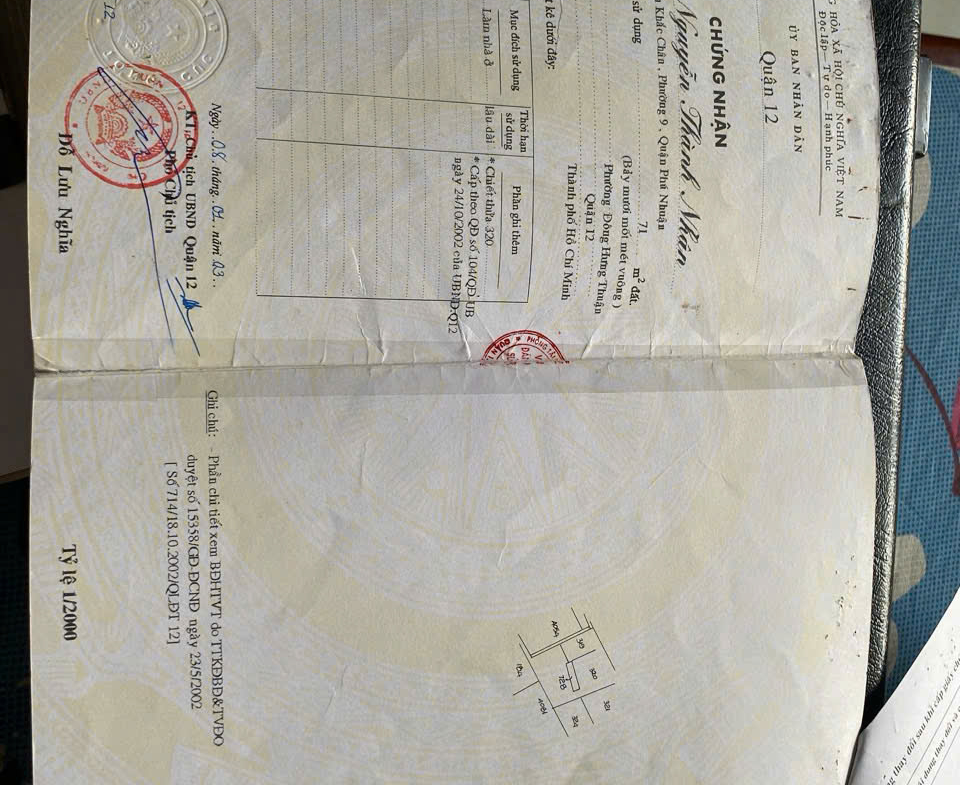 HÒA XÃ HỘI CHỦ NGHĨA VIỆT NAM
Độc lập — Tự do — Hạnh phúc
ỦY BAN NHÂN DÂN
Quận 12
CHỨNG NHẬN
Nguyễn Thành Nhân
Khắc Chân , Phường 9 , Quận Phú Nhuận
sử dụng 71 m² đất.
(Bảy mươi mốt mét vuông )
Phường Đông Hưng Thuận
Quận 12
Thành phố Hồ Chí Minh
kê dưới đây:
Mục đích sử dụng
Thời hạn sử dụng
Phần ghi thêm
Làm nhà ở
lâu dài
* Chiết thửa 320
* Cấp theo QĐ số 104/QĐ-UB
ngày 24/10/2002 của UBND-Q12
Ngày 08 tháng 01 năm 03
KT. Chủ tịch UBND Quận 12
Phó Chủ tịch
Đỗ Lưu Nghĩa
319
320
321
728
324
Ghi chú: - Phần chi tiết xem BĐHTVT do TTKĐBĐ&TVĐO
duyệt số 15358/GĐ-ĐCNĐ ngày 23/5/2002
[ Số 714/18.10.2002/QLĐT 12]
Tỷ lệ 1/2000
thay đổi sau khi cấp giấy